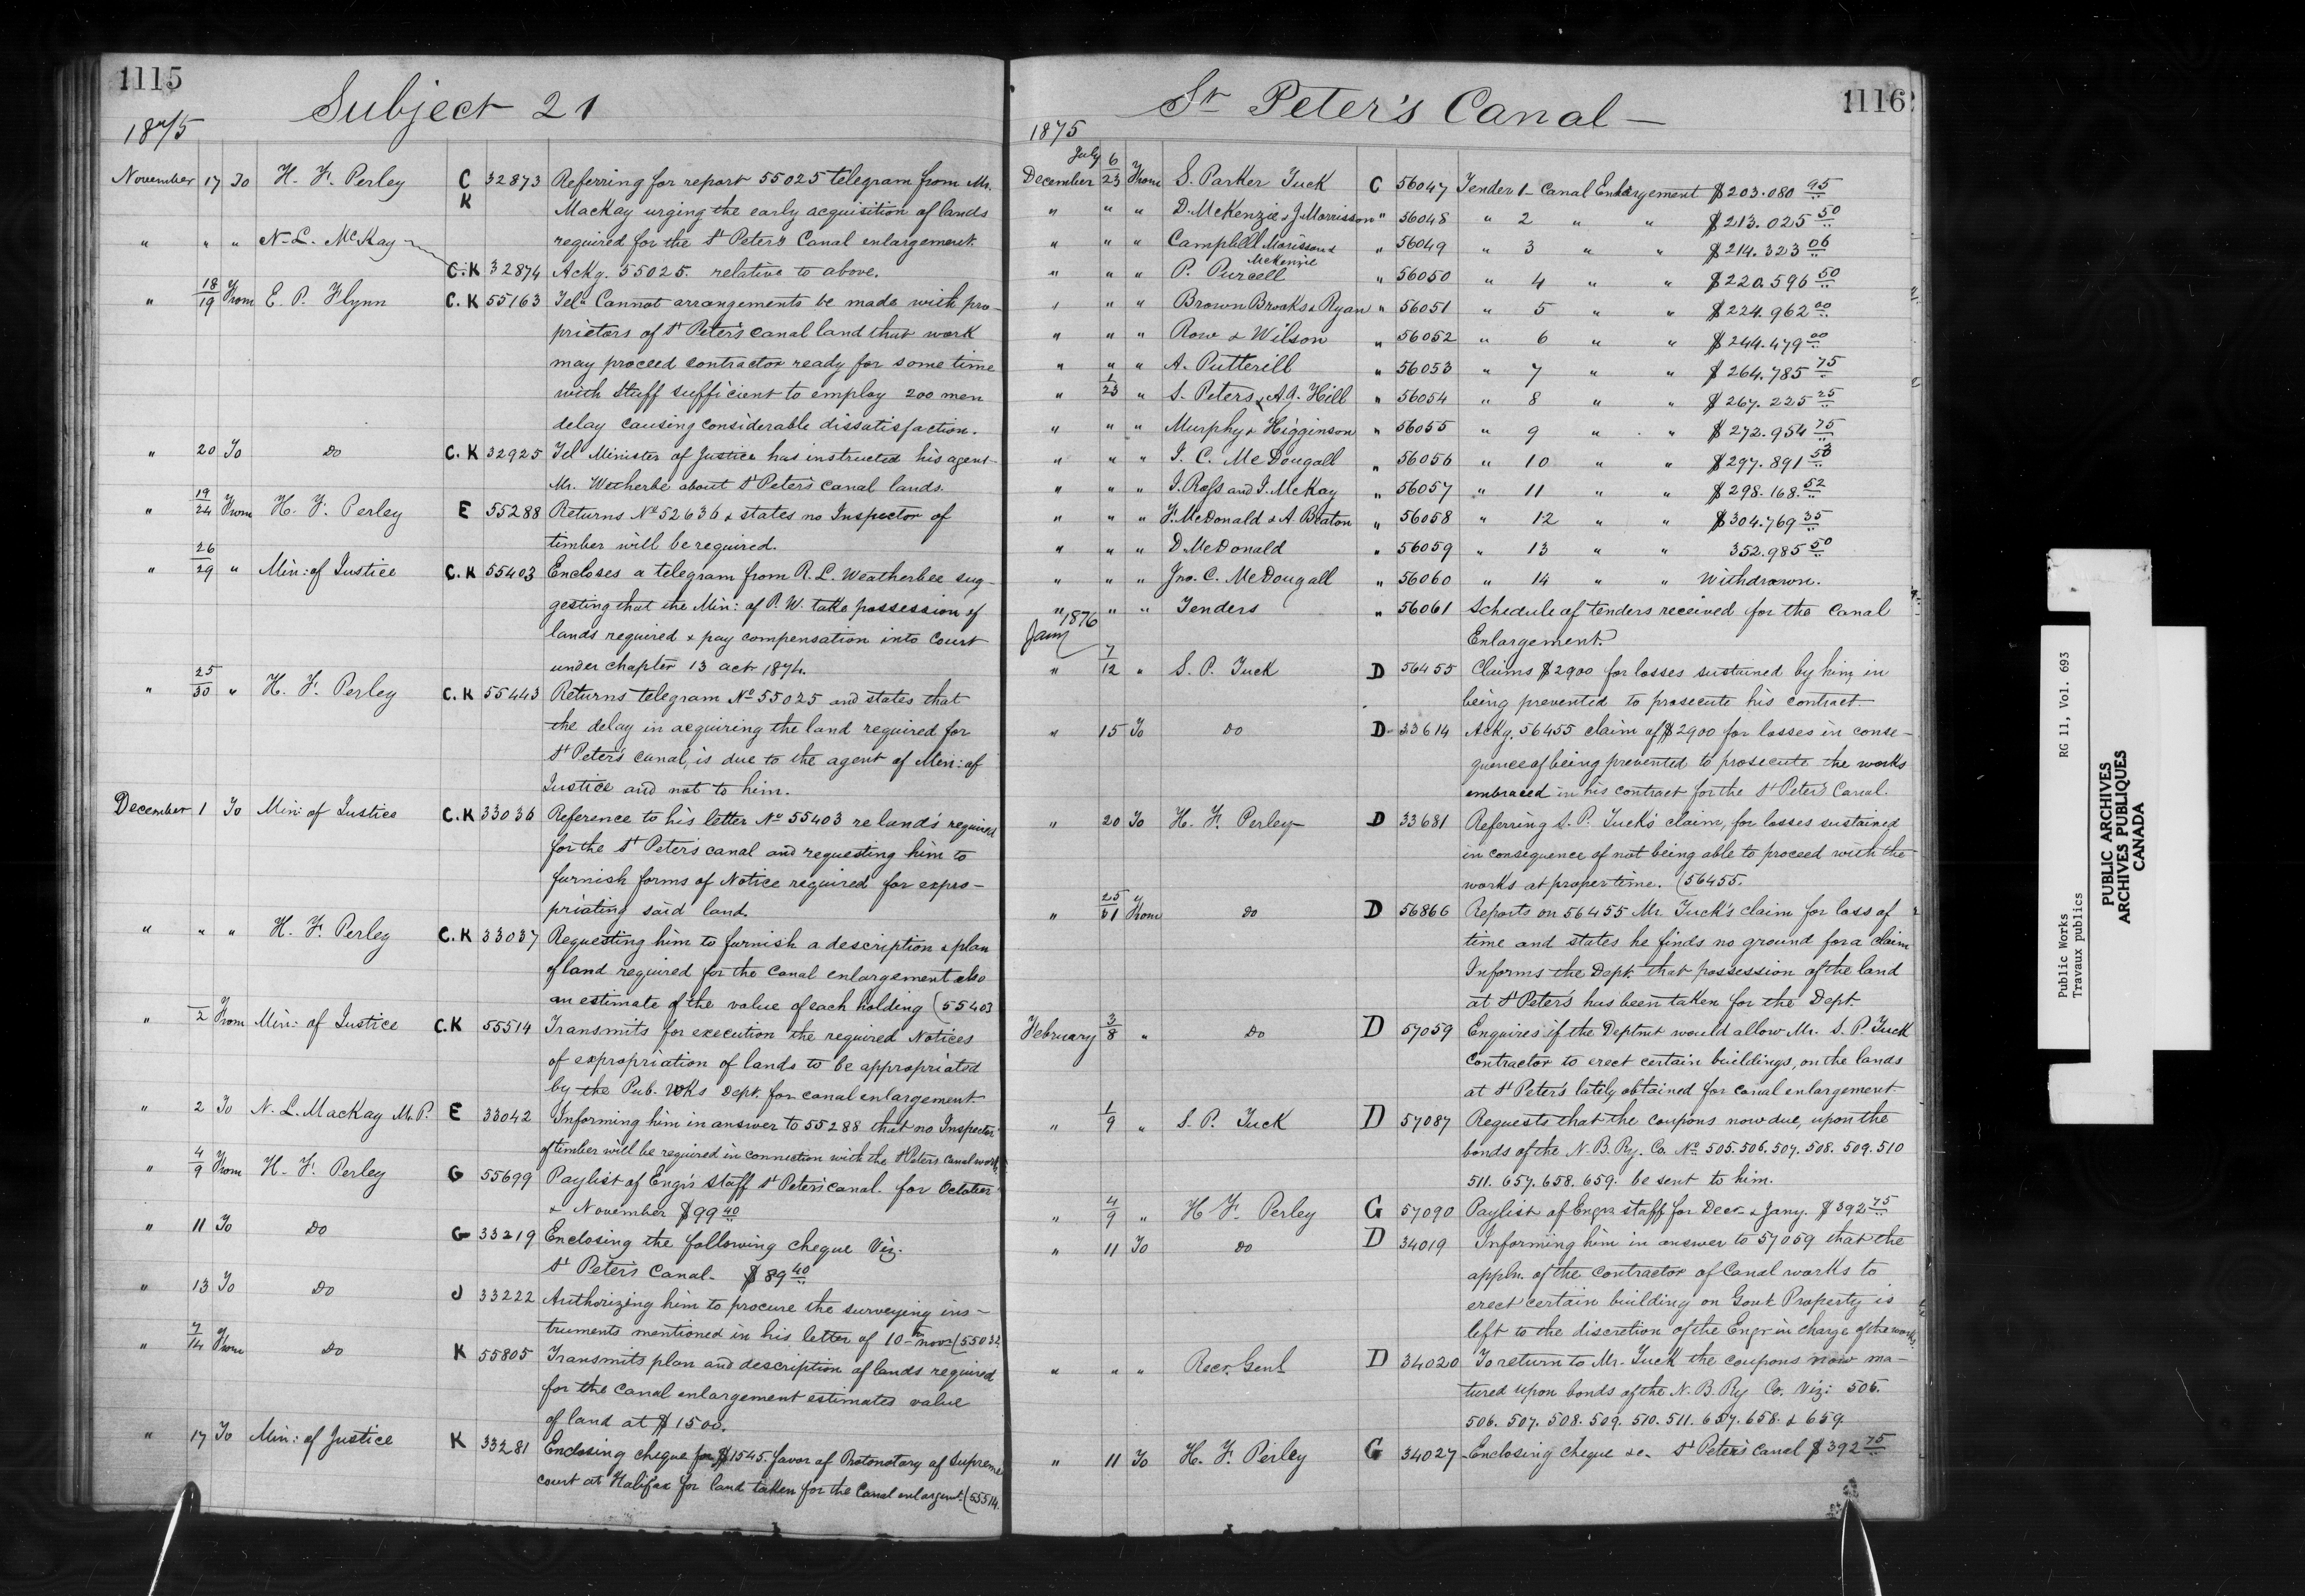 1115
Subject 21
1875
November 17 To H. F. Perley C K 32873 Referring for report 55025 telegram from Mr.
MacKay urging the early acquisition of lands
" " " N. L. McKay required for the St Peter's Canal enlargement.
C.K 32874 Ackg. 55025. relative to above.
" 18/19 From E. P. Flynn C.K 55163 Tel: Cannot arrangements be made with pro-
prietors of St Peter's canal land that work
may proceed contractor ready for some time
with staff sufficient to employ 200 men
delay causing considerable dissatisfaction.
" 20 To Do C.K 32925 Tel Minister of Justice has instructed his agent
Mr. Wetherbe about St Peter's canal lands.
" 19/24 From H. F. Perley E 55288 Returns No 52636 & states no Inspector of
timber will be required.
" 26/29 " Min: of Justice C.K 55403 Encloses a telegram from R. L. Weatherbee sug-
gesting that the Min: of P. W. take possession of
lands required & pay compensation into Court
under chapter 13 act 1874.
" 25/30 " H. F. Perley C.K 55443 Returns telegram No 55025 and states that
the delay in acquiring the land required for
St Peter's canal, is due to the agent of Min: of
Justice and not to him.
December 1 To Min: of Justice C.K 33036 Reference to his letter No 55403 re land's required
for the St Peter's canal and requesting him to
furnish forms of Notice required for expro-
priating said land.
" " " H. F. Perley C.K 33037 Requesting him to furnish a description & plan
of land required for the canal enlargement also
an estimate of the value of each holding (55403
" 2 From Min: of Justice C.K 55514 Transmits for execution the required Notices
of expropriation of lands to be appropriated
by the Pub. Wks Dept. for canal enlargement.
" 2 To N. L. MacKay M.P. E 33042 Informing him in answer to 55288 that no Inspector
of timber will be required in connection with the St Peters Canal work.
" 4/9 From H. F. Perley G 55699 Paylist of Engr's staff St Peter's canal. for October
& November $99 40
" 11 To Do G 33219 Enclosing the following cheque Viz.
St Peter's Canal - $89 40
" 13 To Do J 33222 Authorizing him to procure the surveying ins-
truments mentioned in his letter of 10th novr (55032
" 7/14 From Do K 55805 Transmits plan and description of lands required
for the canal enlargement estimates value
of land at $1500.
" 17 To Min: of Justice K 33281 Enclosing cheque for $1545. favor of Protonotary of Supreme
court at Halifax for land taken for the Canal enlargmt (55514.
St Peter's Canal —
1116
1875
December July 6/23 From S. Parker Tuck C 56047 Tender 1 - Canal Enlargement $203.080 95
" " " D. McKenzie & J Morrisson " 56048 " 2 " " $213.025 50
" " " Campbell Morisson & McKenzie " 56049 " 3 " " $214.323 06
" " " P. Purcell " 56050 " 4 " " $220.596 50
" " " Brown Brooks & Ryan " 56051 " 5 " " $224.962 00
" " " Row & Wilson " 56052 " 6 " " $244.479 00
" " " A. Putterill " 56053 " 7 " " $264.785 75
" 1/23 " S. Peters & A.J. Hill " 56054 " 8 " " $267.225 25
" " " Murphy & Higginson " 56055 " 9 " " $272.954 75
" " " J. C. McDougall " 56056 " 10 " " $297.891 53
" " " J. Ross and J. McKay " 56057 " 11 " " $298.168.52
" " " F. McDonald & A. Beaton " 56058 " 12 " " $304.769 35
" " " D. McDonald " 56059 " 13 " " 352.985 50
" " " Jno. C. McDougall " 56060 " 14 " " Withdrawn.
" " " Tenders " 56061 Schedule of tenders received for the Canal
Enlargement.
1876
Jany
" 7/12 " S. P. Tuck D 56455 Claims $2900 for losses sustained by him, in
being prevented to prosecute his contract.
" 15 To Do D 33614 Ackg. 56455 claim of $2900 for losses in conse-
quence of being prevented to prosecute the works
embraced in his contract for the St Peter's Canal.
" 20 To H. F. Perley D 33681 Referring S. P. Tuck's claim, for losses sustained
in consequence of not being able to proceed with the
works at proper time. (56455.
" 25/31 From Do D 56866 Reports on 56455 Mr. Tuck's claim for loss of
time and states he finds no ground for a claim
Informs the Dept. that possession of the land
at St Peter's has been taken for the Dept.
February 3/8 " Do D 57059 Enquires if the Deptmt would allow Mr. S. P. Tuck
Contractor to erect certain buildings, on the lands
at St Peter's lately obtained for canal enlargement.
" 1/9 " S. P. Tuck D 57087 Requests that the coupons now due, upon the
bonds of the N. B. Ry. Co. No 505. 506. 507. 508. 509. 510
511. 657. 658. 659. be sent to him.
" 4/9 " H F. Perley G 57090 Paylist of Engrs staff for Decr & Jany. $392 75
" 11 To Do D 34019 Informing him in answer to 57059 that the
appln. of the contractor of Canal works to
erect certain building on Govt Property is
left to the discretion of the Engr in charge of the works.
" " " Recr. Genl D 34020 To return to Mr. Tuck the coupons now ma-
tured upon bonds of the N. B. Ry Co. Viz: 505.
506. 507. 508. 509. 510. 511. 657. 658. & 659
" 11 To H. F. Perley G 34027 Enclosing cheque &c. St Peter's Canal $392 75
Public Works RG 11, Vol. 693
Travaux publics
PUBLIC ARCHIVES
ARCHIVES PUBLIQUES
CANADA